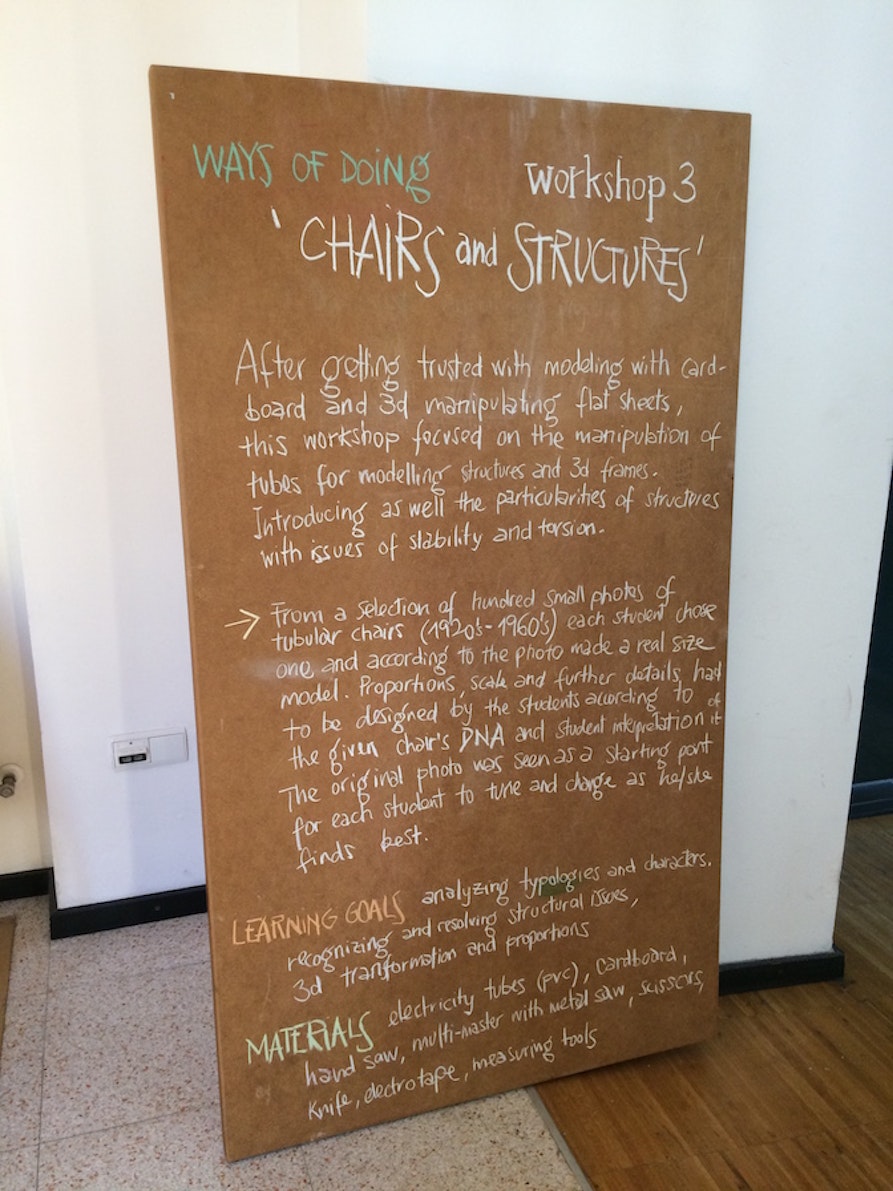 WAYS OF DOING workshop 3
'CHAIRS and STRUCTURES'
After getting trusted with modeling with card-
board and 3d manipulating flat sheets,
this workshop focused on the manipulation of
tubes for modelling structures and 3d frames.
Introducing as well the particularities of structures
with issues of stability and torsion.
→ From a selection of hundred small photos of
tubular chairs (1920's-1960's) each student chose
one and according to the photo made a real size
model. Proportions, scale and further details had
to be designed by the students according to
the given chair's DNA and student interpretation of it
The original photo was seen as a starting point
for each student to tune and change as he/she
finds best.
LEARNING GOALS analyzing typologies and characters.
recognizing and resolving structural issues,
3d transformation and proportions
MATERIALS electricity tubes (pvc), cardboard,
hand saw, multi-master with metal saw, scissors,
knife, electrotape, measuring tools